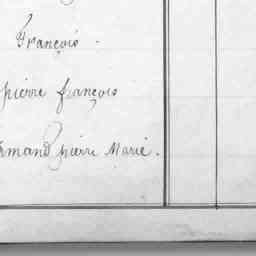 François -
pierre françois
rmand pierre Marie.